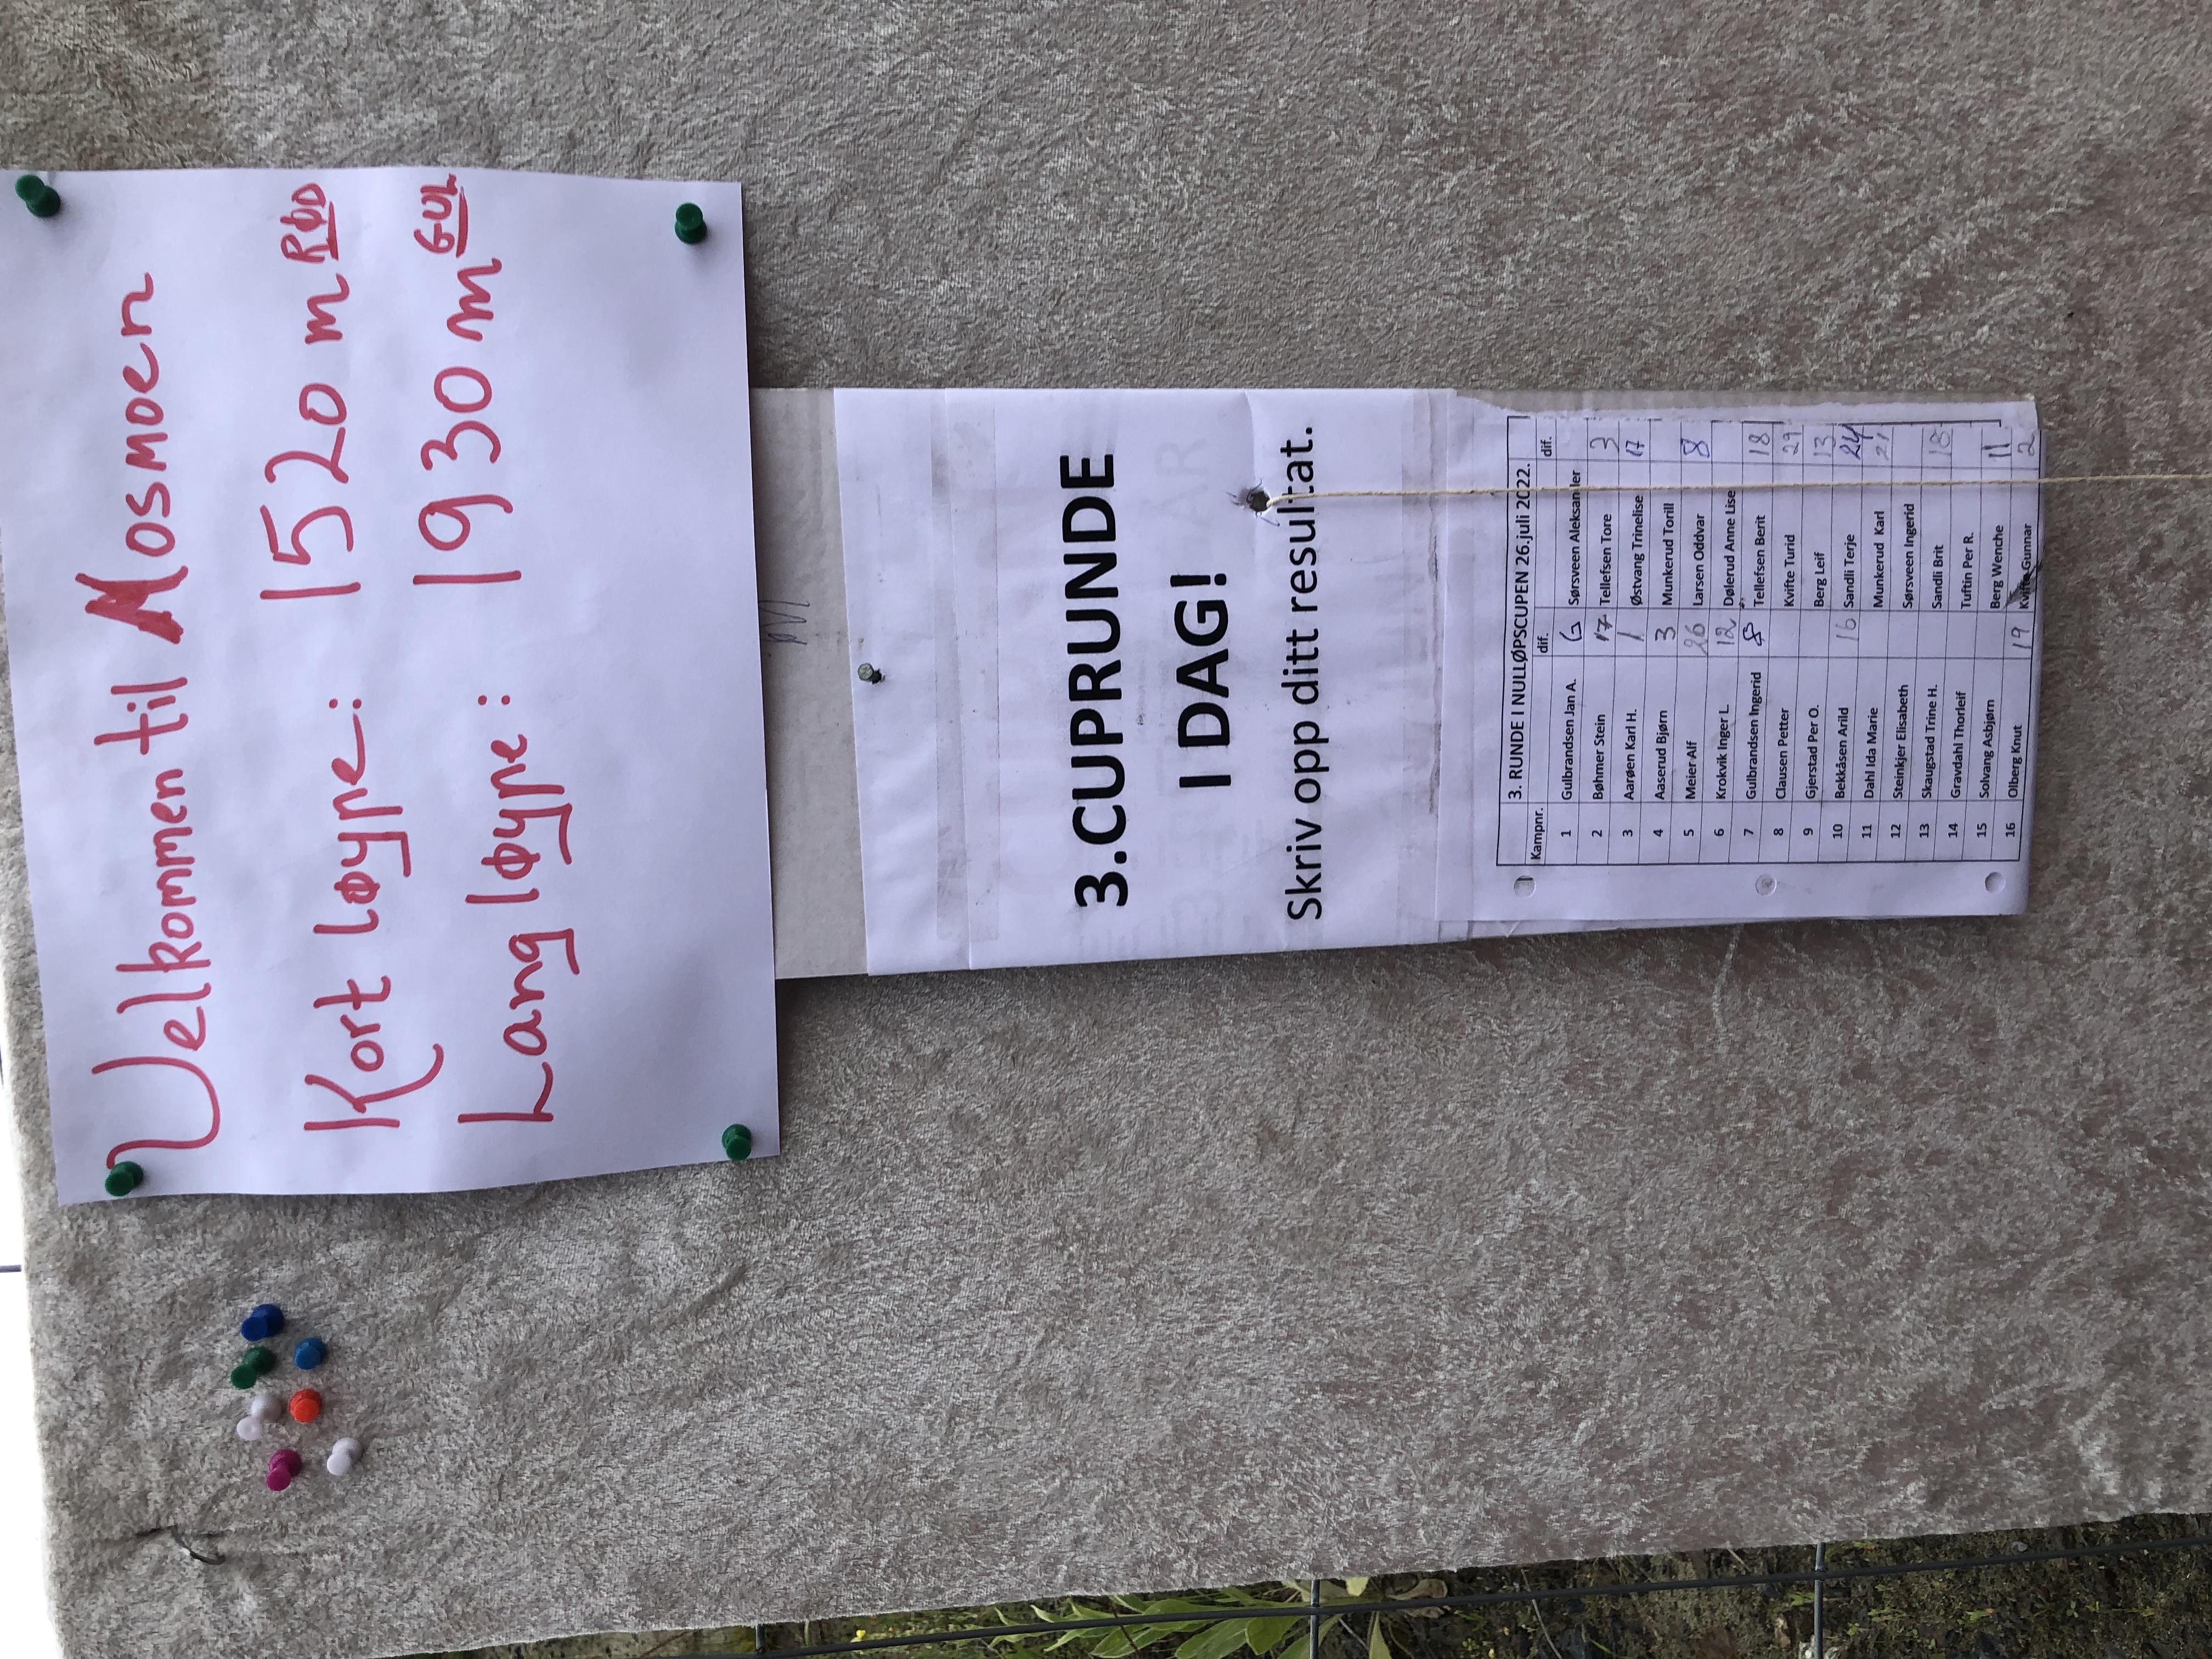 Velkommen til Mosmoen
Kort løype: 1520 m RØD
Lang løype: 1930 m GUL
3.CUPRUNDE
I DAG!
Skriv opp ditt resultat.
3. RUNDE I NULLØPSCUPEN 26.juli 2022.
Kampnr. dif. dif.
1 Gulbrandsen Jan A. Sørsveen Aleksander
2 Bøhmer Stein 17 Tellefsen Tore 3
3 Aarøen Karl H. 1 Østvang Trinelise 17
4 Aaserud Bjørn 3 Munkerud Torill
5 Meier Alf 26 Larsen Oddvar 8
6 Krokvik Inger L. 12 Dølerud Anne Lise
7 Gulbrandsen Ingerid 8 Tellefsen Berit 18
8 Clausen Petter Kvifte Turid 29
9 Gjerstad Per O. Berg Leif 13
10 Bekkåsen Arild 16 Sandli Terje 24
11 Dahl Ida Marie Munkerud Karl 21
12 Steinkjer Elisabeth Sørsveen Ingerid
13 Skaugstad Trine H. Sandli Brit 18
14 Gravdahl Thorleif Tuftin Per R.
15 Solvang Asbjørn Berg Wenche 11
16 Olberg Knut 19 Kvifte Gunnar 2